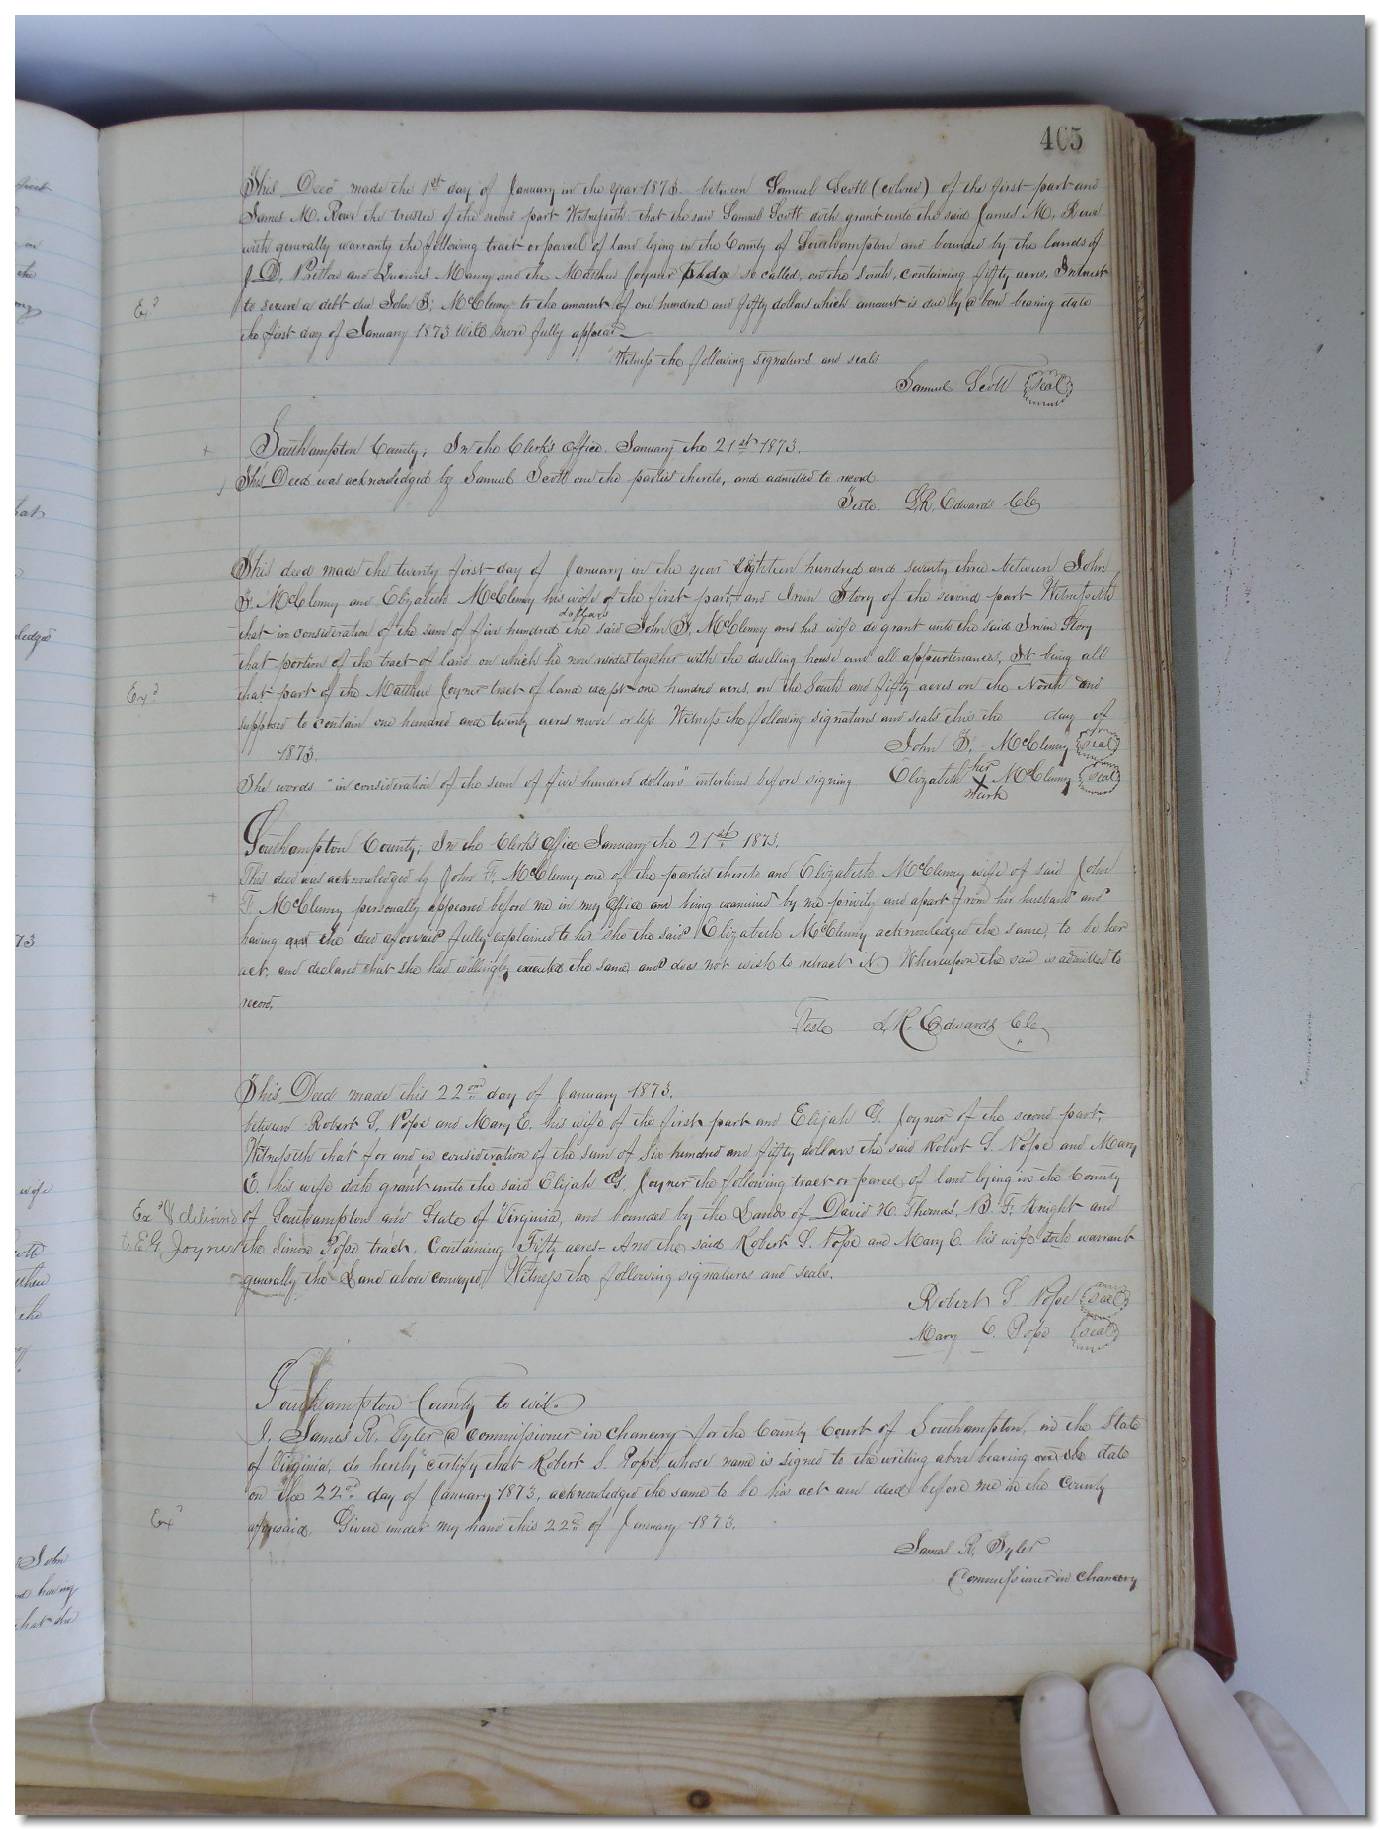 405
This Deed made the 1st day of January in the year 1873. between Samuel Scott (colored) of the first part and
James M. Rowe the trustee of the second part Witnesseth that the said Samuel Scott doth grant unto the said James M. Rowe
with generally warranty the following tract or parcel of land lying in the County of Southampton and bounded by the lands of
J. D. Pretlow and Lucius Manry and the Matthew Joyner so called, on the South, containing fifty acres, In trust
to secure a debt due John F. McClenny to the amount of one hundred and fifty dollars which amount is due by a bond bearing date
Exd
the first day of January 1873 will more fully appear
Witness the following signatures and seals
Samuel Scott Seal
Southampton County; In the Clerk's Office January the 21st 1873.
This Deed was acknowledged by Samuel Scott one the parties thereto, and admitted to record
Teste. L. R. Edwards Clk
This deed made the twenty first day of January in the year Eighteen hundred and seventy three between John
F. McClenny and Elizabeth McClenny his wife of the first part, and Irvin Story of the second part Witnesseth
dollars
that in consideration of the sum of five hundred the said John F. McClenny and his wife do grant unto the said Irvin Story
that portion of the tract of land on which he now resides together with the dwelling house and all appurtenances, It being all
that part of the Matthew Joyner tract of land except one hundred acres on the South and fifty acres on the North and
Exd
supposed to contain one hundred and twenty acres more or less Witness the following signatures and seals this the day of
1873. John F. McClenny Seal
The words "in consideration of the sum of five hundred dollars" interlined before signing Elizabeth her X mark McClenny Seal
Southampton County; In the Clerk's Office January the 21st 1873.
This deed was acknowledged by John F. McClenny one of the parties thereto and Elizabeth McClenny wife of said John
F. McClenny personally appeared before me in my Office and being examined by me privily and apart from her husband and
having the deed aforesaid fully explained to her she the said Elizabeth McClenny acknowledged the same to be her
act, and declared that she had willingly executed the same and does not wish to retract it Whereupon the said is admitted to
record.
Teste L. R. Edwards Clk
This Deed made this 22nd day of January 1873.
between Robert S. Pope and Mary E. his wife of the first part and Elijah G. Joyner of the second part,
Witnesseth that for and in consideration of the sum of Six hundred and fifty dollars the said Robert S. Pope and Mary
E. his wife doth grant unto the said Elijah G. Joyner the following tract or parcel of land lying in the County
Exd & delivered of Southampton and State of Virginia, and bounded by the Lands of David H. Thomas, B. F. Knight and
to E G Joyner the Simon Pope tract, Containing Fifty acres- And the said Robert S. Pope and Mary E. his wife doth warrant
generally the Land above conveyed, Witness the following signatures and seals.
Robert S Pope Seal
Mary E. Pope Seal
Southampton County to wit.
I, James R. Tyler a Commissioner in Chancery for the County Court of Southampton, in the State
of Virginia, do hereby certify that Robert S. Pope, whose name is signed to the writing above bearing date
on the 22nd day of January 1873, acknowledged the same to be his act and deed before me in the County
Exd
aforesaid. Given under my hand this 22nd of January 1873.
James R. Tyler
Commissioner in Chancery